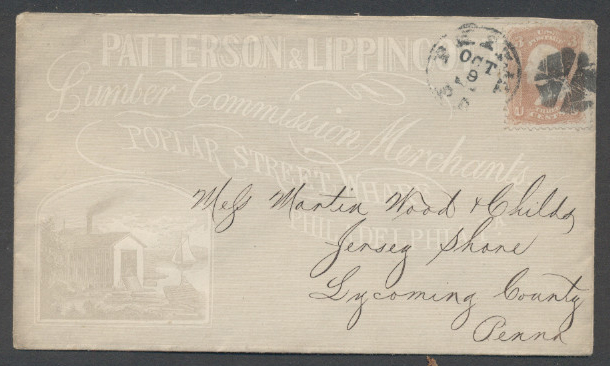 PATTERSON & LIPPINCO
Lumber Commission Merchants,
POPLAR STREET WHAR
PHILADELPHIA
OCT
19
CENTS
Mess Martin Wood & Childs
Jersey Shore
Lycoming County
Penna